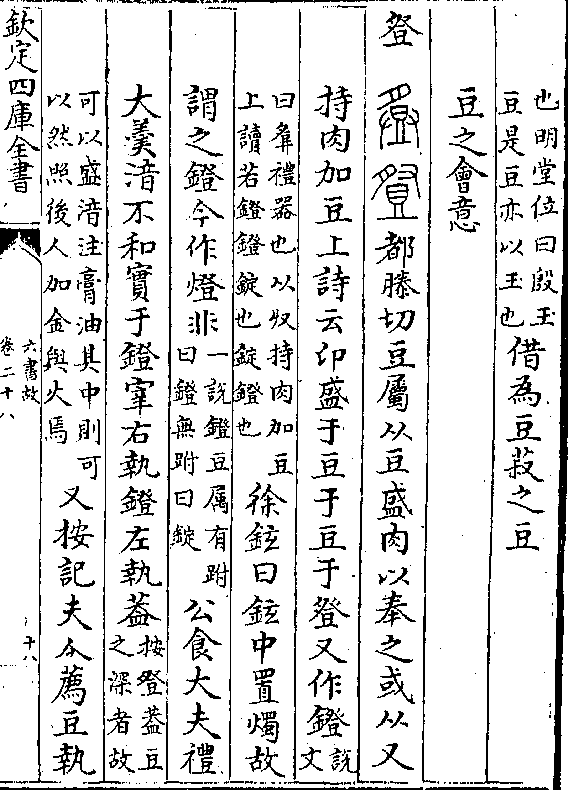 也明堂位曰殷玉
豆是豆亦以玉也
借為豆菽之豆
豆之會意
豋
都滕切豆屬从豆盛肉以奉之或从又
持肉加豆上詩云卬盛于豆于豆于豋又作鐙
說
文
曰豋禮器也以収持肉加豆
上讀若鐙鐙錠也錠鐙也
徐鉉曰錠中置燭故
謂之鐙今作燈非
一說鐙豆屬有跗
曰鐙無跗曰錠
公食大夫禮
大羹湇不和實于鐙宰右執鐙左執葢
按豋葢豆
之深者故
可以盛湇注膏油其中則可
以然照後人加金與火焉
又按記夫人薦豆執
欽定四庫全書
六書故
卷二十八
十八